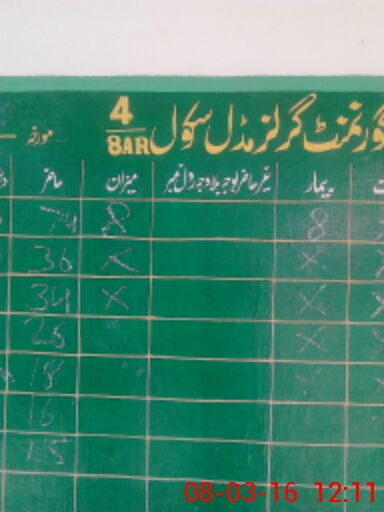 گورنمنٹ گرلز مڈل سکول 4/8AR مورخہ
بیمار غیر حاضر بوجہ بلاوجہ رول نمبر میزان حاضر
8 8 74
x x 36
x x 34
x 28
x 18
16
15
08-03-16 12:11